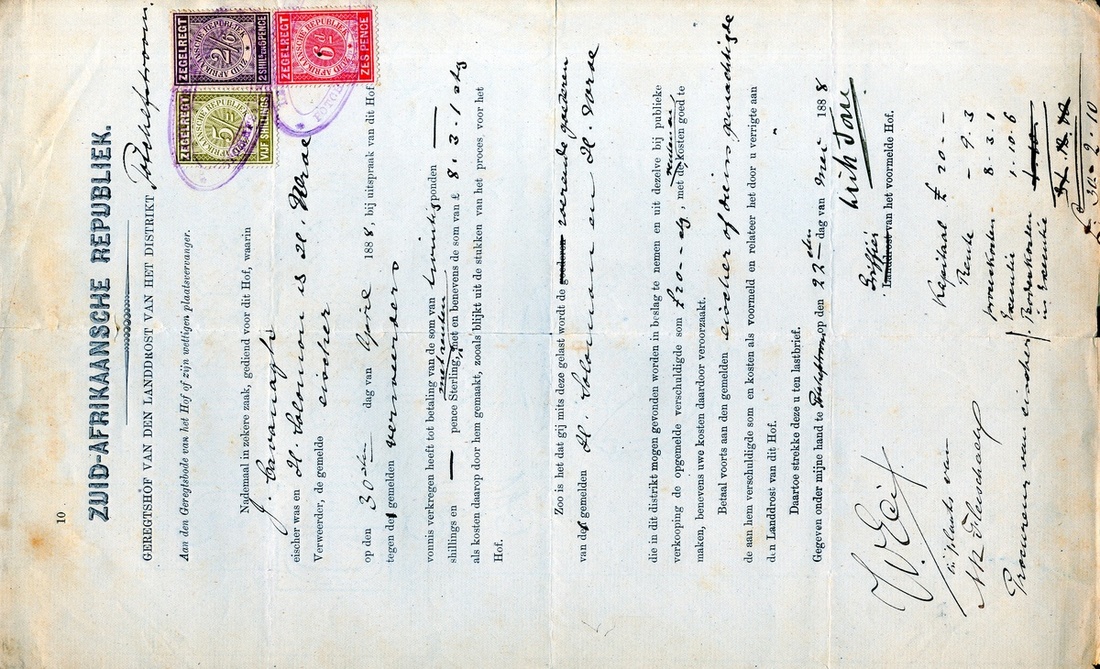 10
ZUID-AFRIKAANSCHE REPUBLIEK.
GEREGTSHOF VAN DEN LANDDROST VAN HET DISTRIKT Potchefstroom.
Aan den Geregtsbode van het Hof of zijn wettigen plaatsvervanger.
ZEGELREGT
ZUID AFRIKAANSCHE REPUBLIEK
2/6
2 SHILL. EN 6 PENCE
ZEGELREGT
ZUID AFRIKAANSCHE REPUBLIEK
6d
ZES PENCE
ZEGELREGT
ZUID AFRIKAANSCHE REPUBLIEK
5/-
VIJF SHILLINGS
Nademaal in zekere zaak, gediend voor dit Hof, waarin
J. Cavanagh
eischer was en H. Solomon is H. Vorae
Verweerder, de gemelde eischer
op den 30sten dag van April 1888, bij uitspraak van dit Hof
tegen den gemelden verweerders
vonnis verkregen heeft tot betaling van de som van twintig ponden —
shillings en — pence Sterling, met renten en benevens de som van £ 8.3.1 stg
als kosten daarop door hem gemaakt, zooals blijkt uit de stukken van het proces voor het
Hof.
Zoo is het dat gij mits deze gelast wordt de goederen roerende goederen
van den gemelden H. Solomon en H. Vorae
die in dit distrikt mogen gevonden worden in beslag te nemen en uit dezelve bij publieke
verkooping de opgemelde verschuldigde som £20-- stg, met de kosten goed te
maken, benevens uwe kosten daardoor veroorzaakt.
Betaal voorts aan den gemelden eischer of dezens gemachtigde
de aan hem verschuldigde som en kosten als voormeld en relateer het door u verrigte aan
den Landdrost van dit Hof.
Daartoe strekke deze u ten lastbrief.
Gegeven onder mijne hand te Potchefstroom op den 22sten dag van Mei 1888
Griffier
Landdrost van het voormelde Hof.
Kapitaal £ 20 - -
Rente - 9.3
proceskosten 8.3.1
Executie 1.10.6
Bodenkosten
in Executie
in plaats van
Procureur van eischer